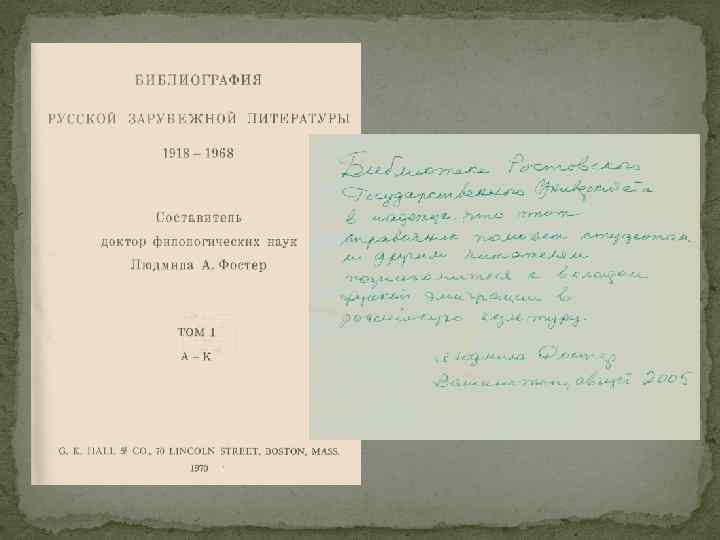 БИБЛИОГРАФИЯ
РУССКОЙ ЗАРУБЕЖНОЙ ЛИТЕРАТУРЫ
1918 – 1968
Составитель
доктор филологических наук
Людмила А. Фостер
ТОМ 1
А – К
G. K. HALL & CO., 70 LINCOLN STREET, BOSTON, MASS.
1970
Библиотеке Ростовского
Государственного Университета
в надежде, что этот
справочник поможет студентам
и другим читателям
познакомиться с вкладом
русской эмиграции в
российскую культуру.
Людмила Фостер
Вашингтон, август 2005